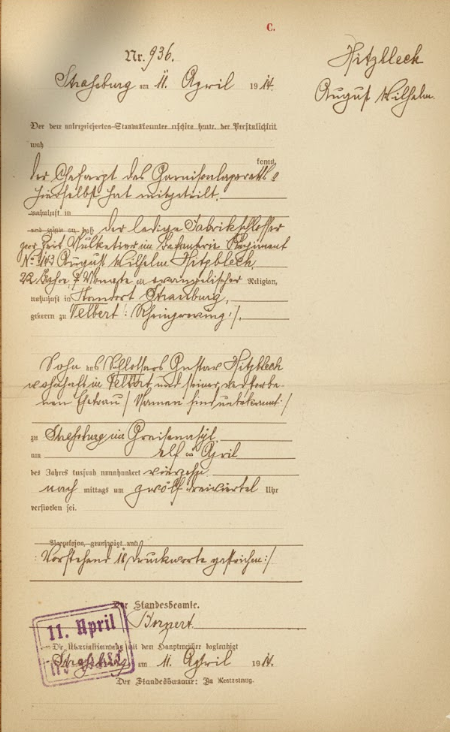 C.
Nr. 936.
Hitzbleck
August Wilhelm.
Straßburg am 11. April 1914.
Vor dem unterzeichneten Standesbeamten erschien heute, der Persönlichkeit
nach
kannt,
Der Chefarzt des Garnisonlazaretts
hierselbst hat mitgeteilt,
wohnhaft in
und zeigte an, daß der ledige Fabrikschlosser
zur Zeit Musketier im Infanterie Regiment
No 143 August Wilhelm Hitzbleck,
22 Jahre 7 Monate evangelischer Religion,
wohnhaft in Standort Straßburg,
geboren zu Velbert
Sohn des Schlossers Gustav Hitzbleck
wohnhaft in Velbert und seiner verstorbe-
nen Ehefrau /: Namen sind unbekannt :/
zu Straßburg im
am elf ten April
des Jahres tausend neunhundert vierzehn
nach mittags um zwölf dreiviertel Uhr
verstorben sei.
Vorgelesen, genehmigt und
Vorstehend 11 Druckworte gestrichen :/
Der Standesbeamte.
11. April
Die Übereinstimmung mit dem Hauptregister beglaubigt
Straßburg am 11. April 1914.
Der Standesbeamte: In Vertretung.